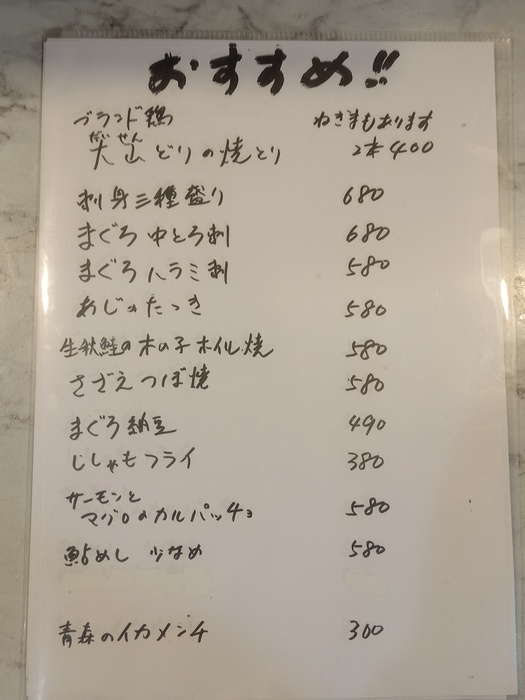 おすすめ!!
ブランド鶏 ねぎまもあります
だいせん
大山どりの焼とり 2本400
刺身三種盛り 680
まぐろ中とろ刺 680
まぐろハラミ刺 580
あじのたたき 580
生秋鮭の木の子ホイル焼 580
さざえつぼ焼 580
まぐろ納豆 490
ししゃもフライ 380
サーモンと
マグロのカルパッチョ 580
鮎めし 少なめ 580
青森のイカメンチ 300